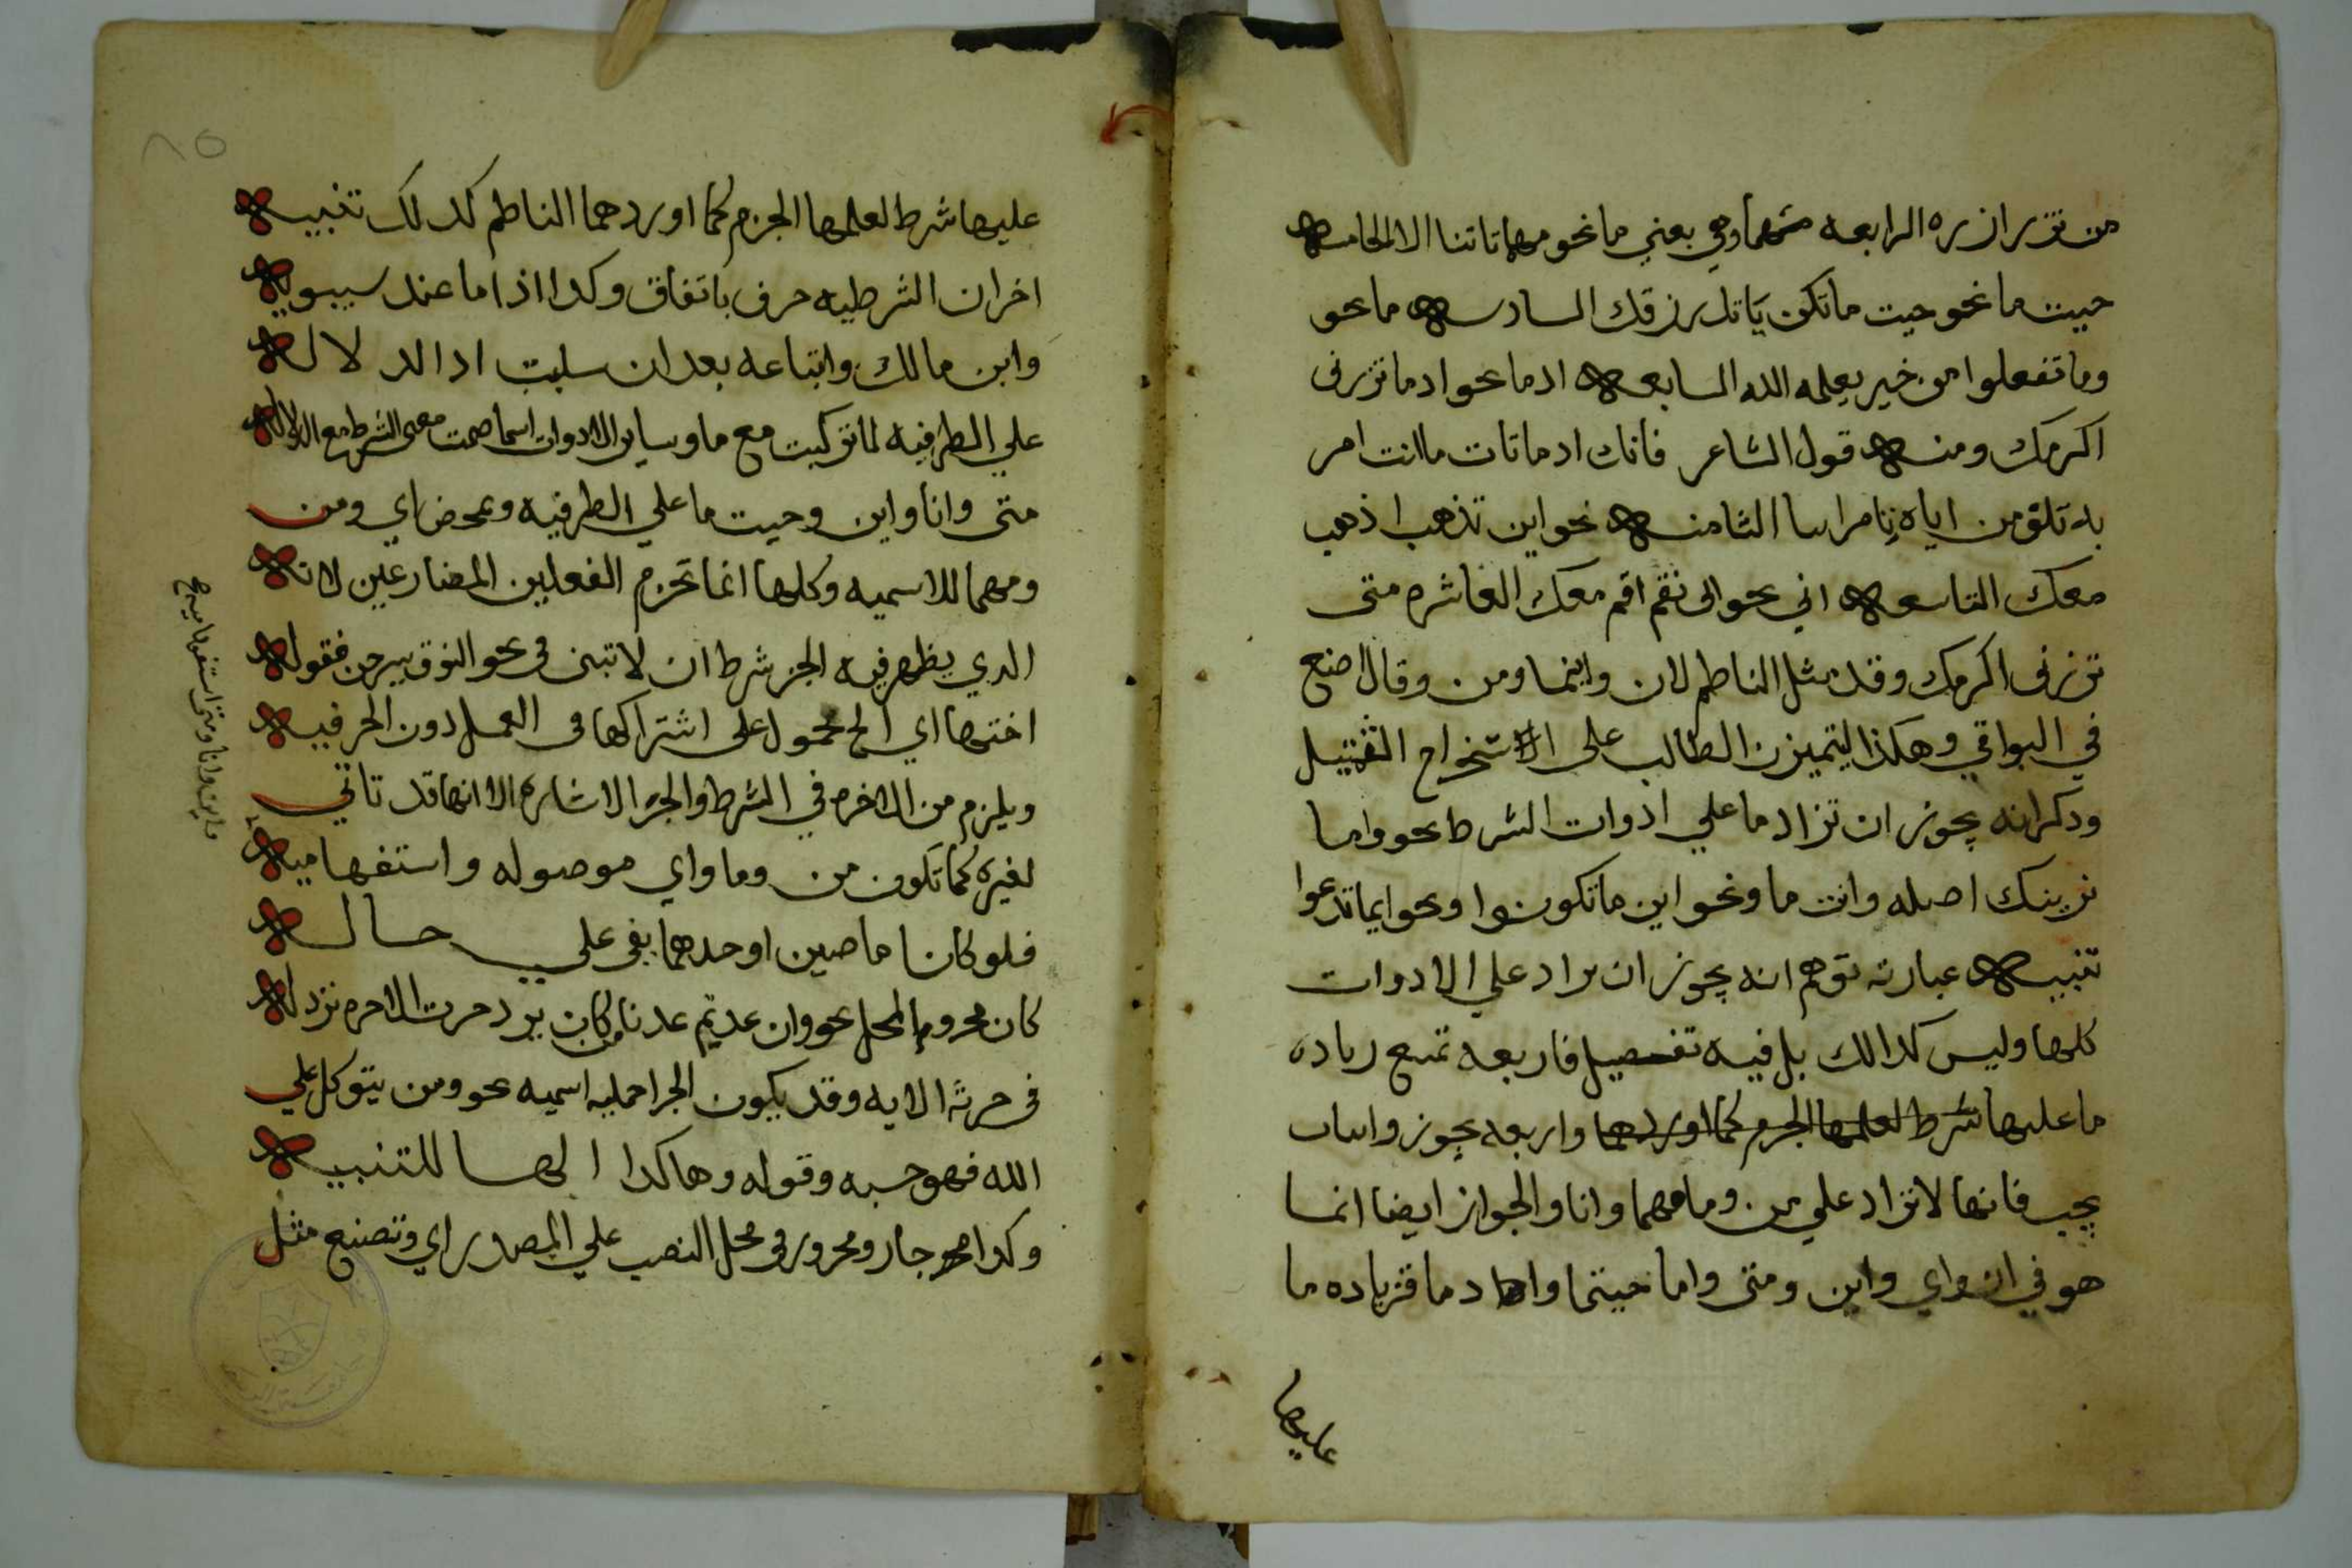 من تزر ازره الرابعه مهما وهي بمعني ما نحو مهما تاتنا الا الخامسه
حيث ما نحو حيث ما تكن ياتك رزقك السادسه ما نحو
وما تفعلوا من خير يعلمه الله السابعه اذما نحو اذ ما تزرنى
اكرمك ومنه قول الشاعر فانك اذ ما تات ما انت امر
به تلق من اياه تامر اتيا الثامنه نحو اين تذهب اذهب
معك التاسعه اني نحو انى تقم اقم معك العاشره متى
تزرنى اكرمك وقد مثل الناظم لان واينما ومن وقال اصنع
في البواقي وهكذا ليتميزن الطالب على الاستخراج التمثيل
وذكر انه يجوز ان تزاد ما علي ادوات الشرط نحو واما
نرينك اصله وان ما ونحو اين ما تكونوا ونحو ايما تدعوا
تنبيه عبارته توهم انه يجوز ان يزاد علي الادوات
كلها وليس كذالك بل فيه تفصيل فاربعه تمنع زياده
ما عليها شرط لعلمها الجزم كما اوردهما واربعه يجوز واثنان
يجب فانها لا تزاد علي من وما مهما وانا والجواز ايضا انما
هو في ان واي واين ومتى واما حيثما واذ ما فزياده ما
عليها
عليها شرط لعلمها الجزم كما اوردهما الناظم كذلك تنبيه
اخر ان الشرطيه حرف باتفاق وكذا اذاما عند سيبويه
وابن مالك واتباعه بعد ان سلبت اذ الدلاله
علي الظرفيه لما تركبت مع ما وساير الادوات اسما ضمت معنى الشرط مع الدلاله
متى وانا واين وحيث ما علي الظرفيه ومحض اي ومن
ومهما للاسميه وكلها انما تجزم الفعلين المضارعين لانه
الذي يظهر فيه الجزم شرط ان لا تبنى فى نحو النوق يبرحن فقوله
اختها اي الخ محمول على اشتراكها فى العمل دون الحرفيه
ويلزم من الاخره في الشرط والجزء الاشاره الا انها قد تاتي
لغيره كما تكون من وما واي موصوله واستفهاميه
واين وانا ومتى استفهاميه صح
فلو كانا ماضين او حدهما بقى علي حاله
كان مجروم المحل نحو وان عدتم عدنا ومن كان يريد حرث الاخره نزد له
فى حرثه الايه وقد يكون الجزا جمليه اسميه نحو ومن يتوكل علي
الله فهو حسبه وقوله وهاكذا الها للتنبيه
وكذا جار ومجرور فى محل النصب علي المصدر اي وتصنع مثل